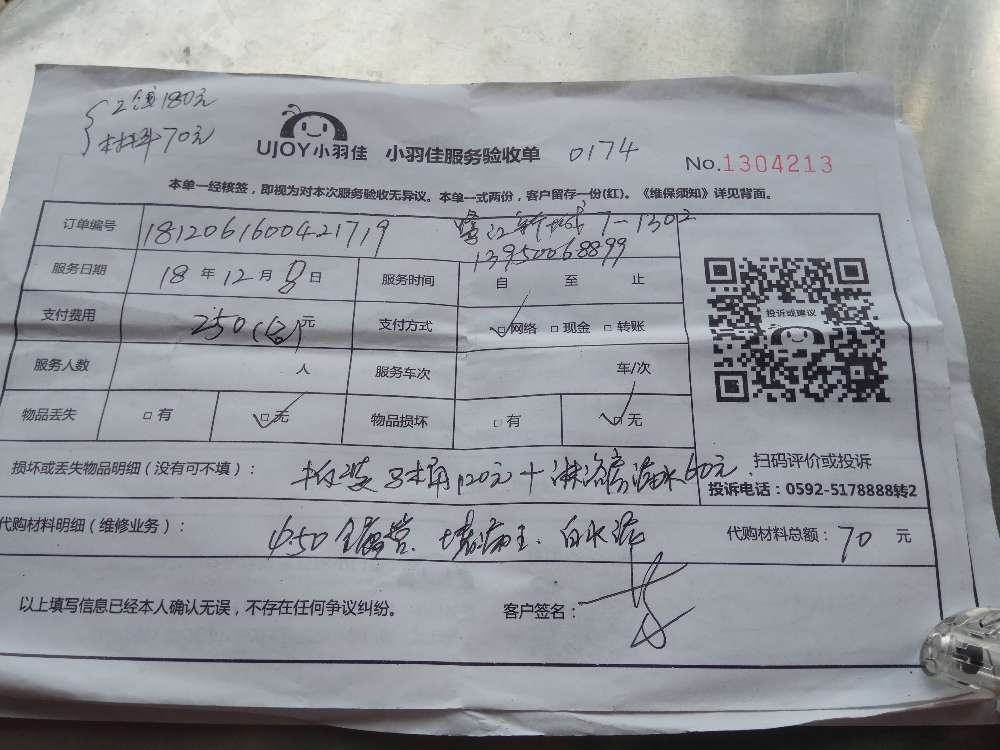 工钱180元
材料70元
UJOY小羽佳 小羽佳服务验收单 0174
No.1304213
本单一经核签，即视为对本次服务验收无异议。本单一式两份，客户留存一份(红)。《维保须知》详见背面。
订单编号 1812061600421719 7-1302
13950068899
服务日期 18年12月8日 服务时间 自 至 止
支付费用 250(包)元 支付方式 ☑网络 □现金 □转账
投诉或建议
服务人数 人 服务车次 车/次
物品丢失 □有 ☑无 物品损坏 □有 ☑无
扫码评价或投诉
损坏或丢失物品明细（没有可不填）： 拆装马桶120元+淋浴房漏水60元
投诉电话：0592-5178888转2
代购材料明细（维修业务）： φ50全 管、堵漏王、白水泥 代购材料总额：70元
以上填写信息已经本人确认无误，不存在任何争议纠纷。 客户签名：